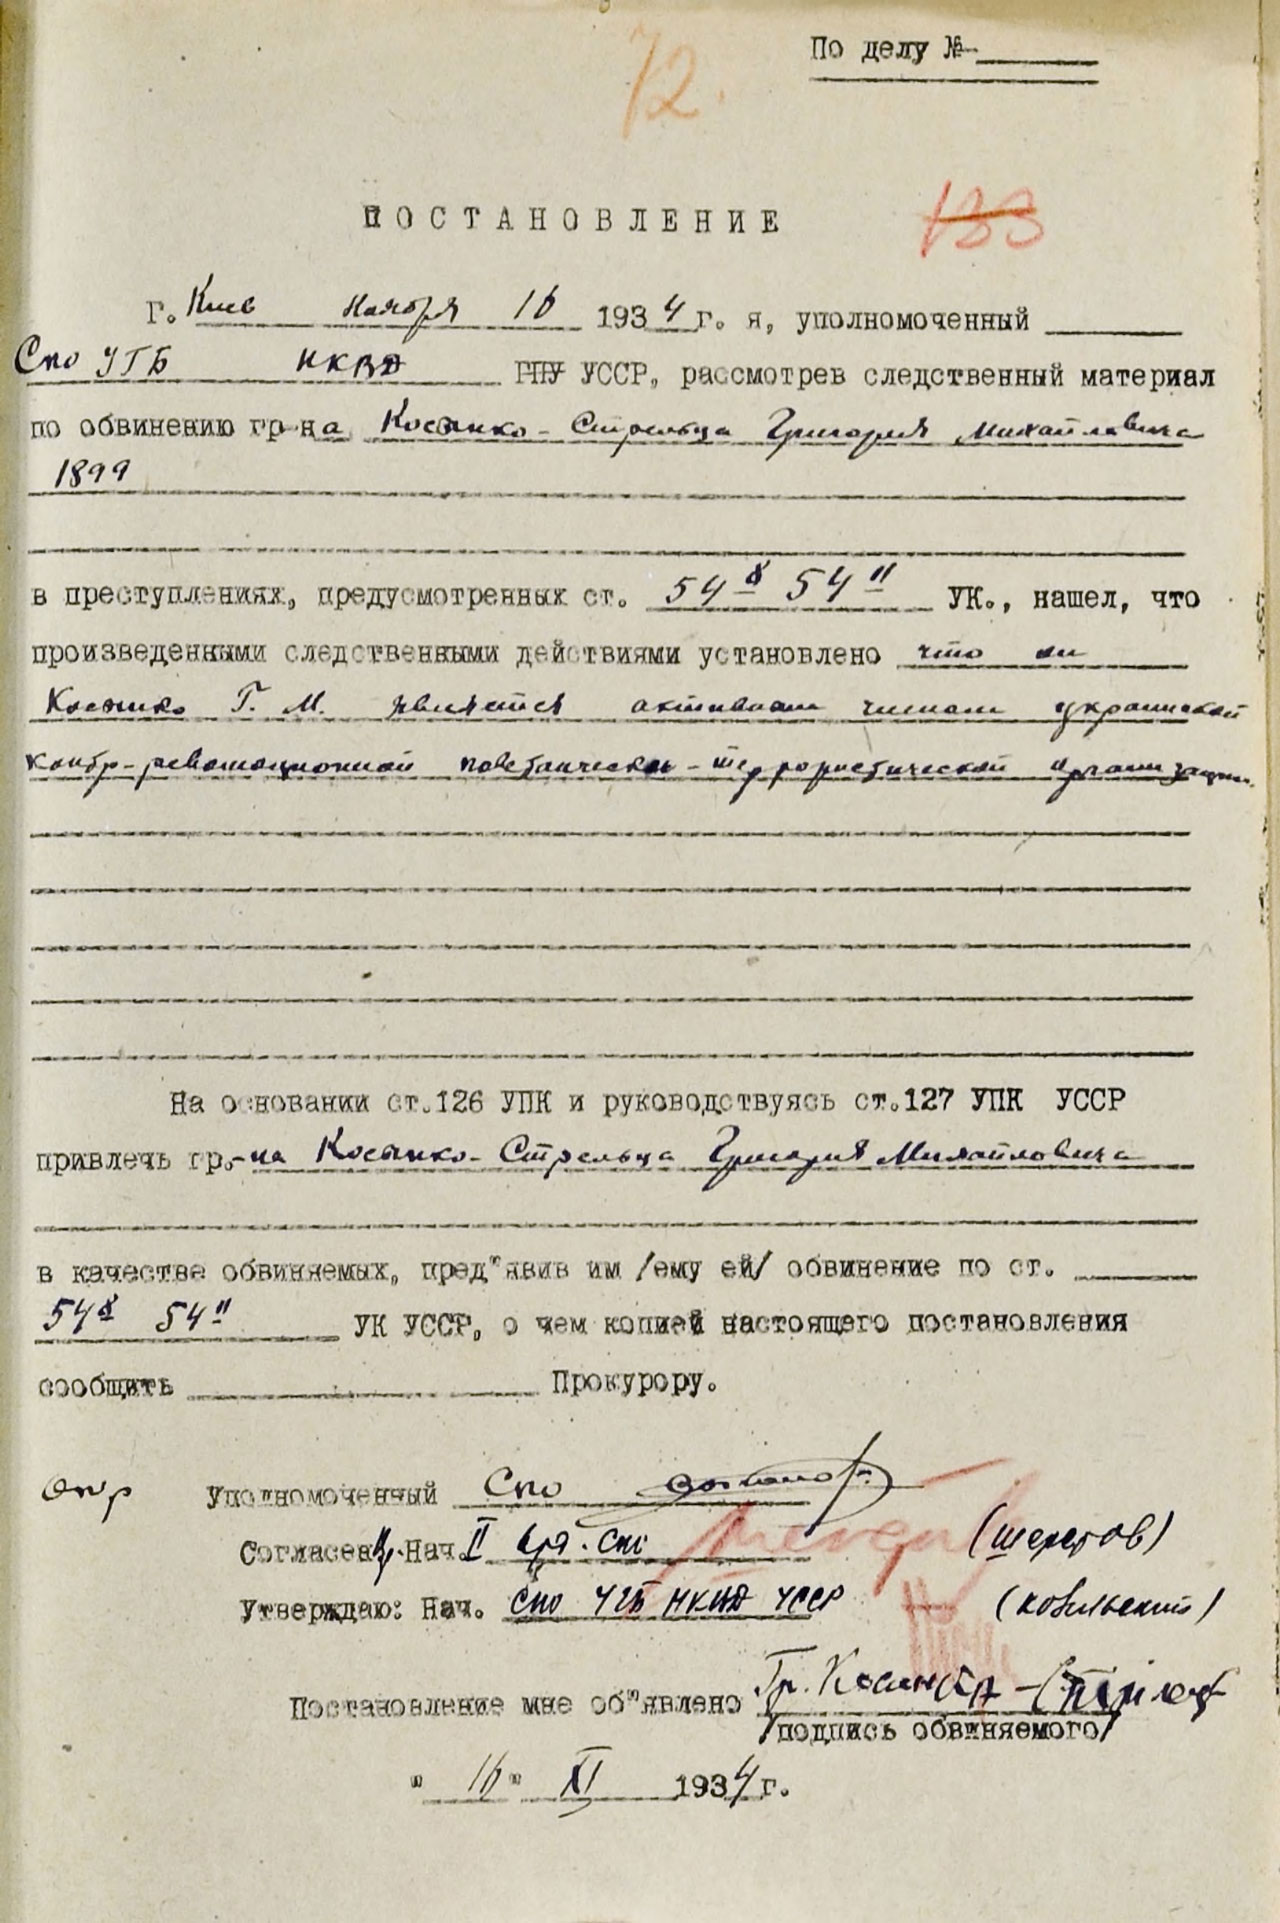 По делу №
72.
ПОСТАНОВЛЕНИЕ
133
г. Киев ноября 16 1934 г. я, уполномоченный
СПО УГБ НКВД ГПУ УССР, рассмотрев следственный материал
по обвинению гр-на Косынко-Стрельца Григория Михайловича
1899
в преступлениях, предусмотренных ст. 54 8 54 11 УК., нашел, что
произведенными следственными действиями установлено что он
Косынко Г. М. является активным членом украинской
контр-революционной повстанческо-террористической организации.
На основании ст.126 УПК и руководствуясь ст.127 УПК УССР
привлечь гр.-на Косынко-Стрельца Григория Михайловича
в качестве обвиняемых, пред"явив им /ему ей/ обвинение по ст.
54 8 54 11 УК УССР, о чем копией настоящего постановления
сообщить Прокурору.
Опер Уполномоченный СПО
Согласен: Нач. II СПО (Шерстов)
Утверждаю: Нач. СПО УГБ НКВД УССР (Козельский)
Постановление мне об"явлено Гр. Косинка-Стрілець
/подпись обвиняемого/
"16" XI 1934 г.